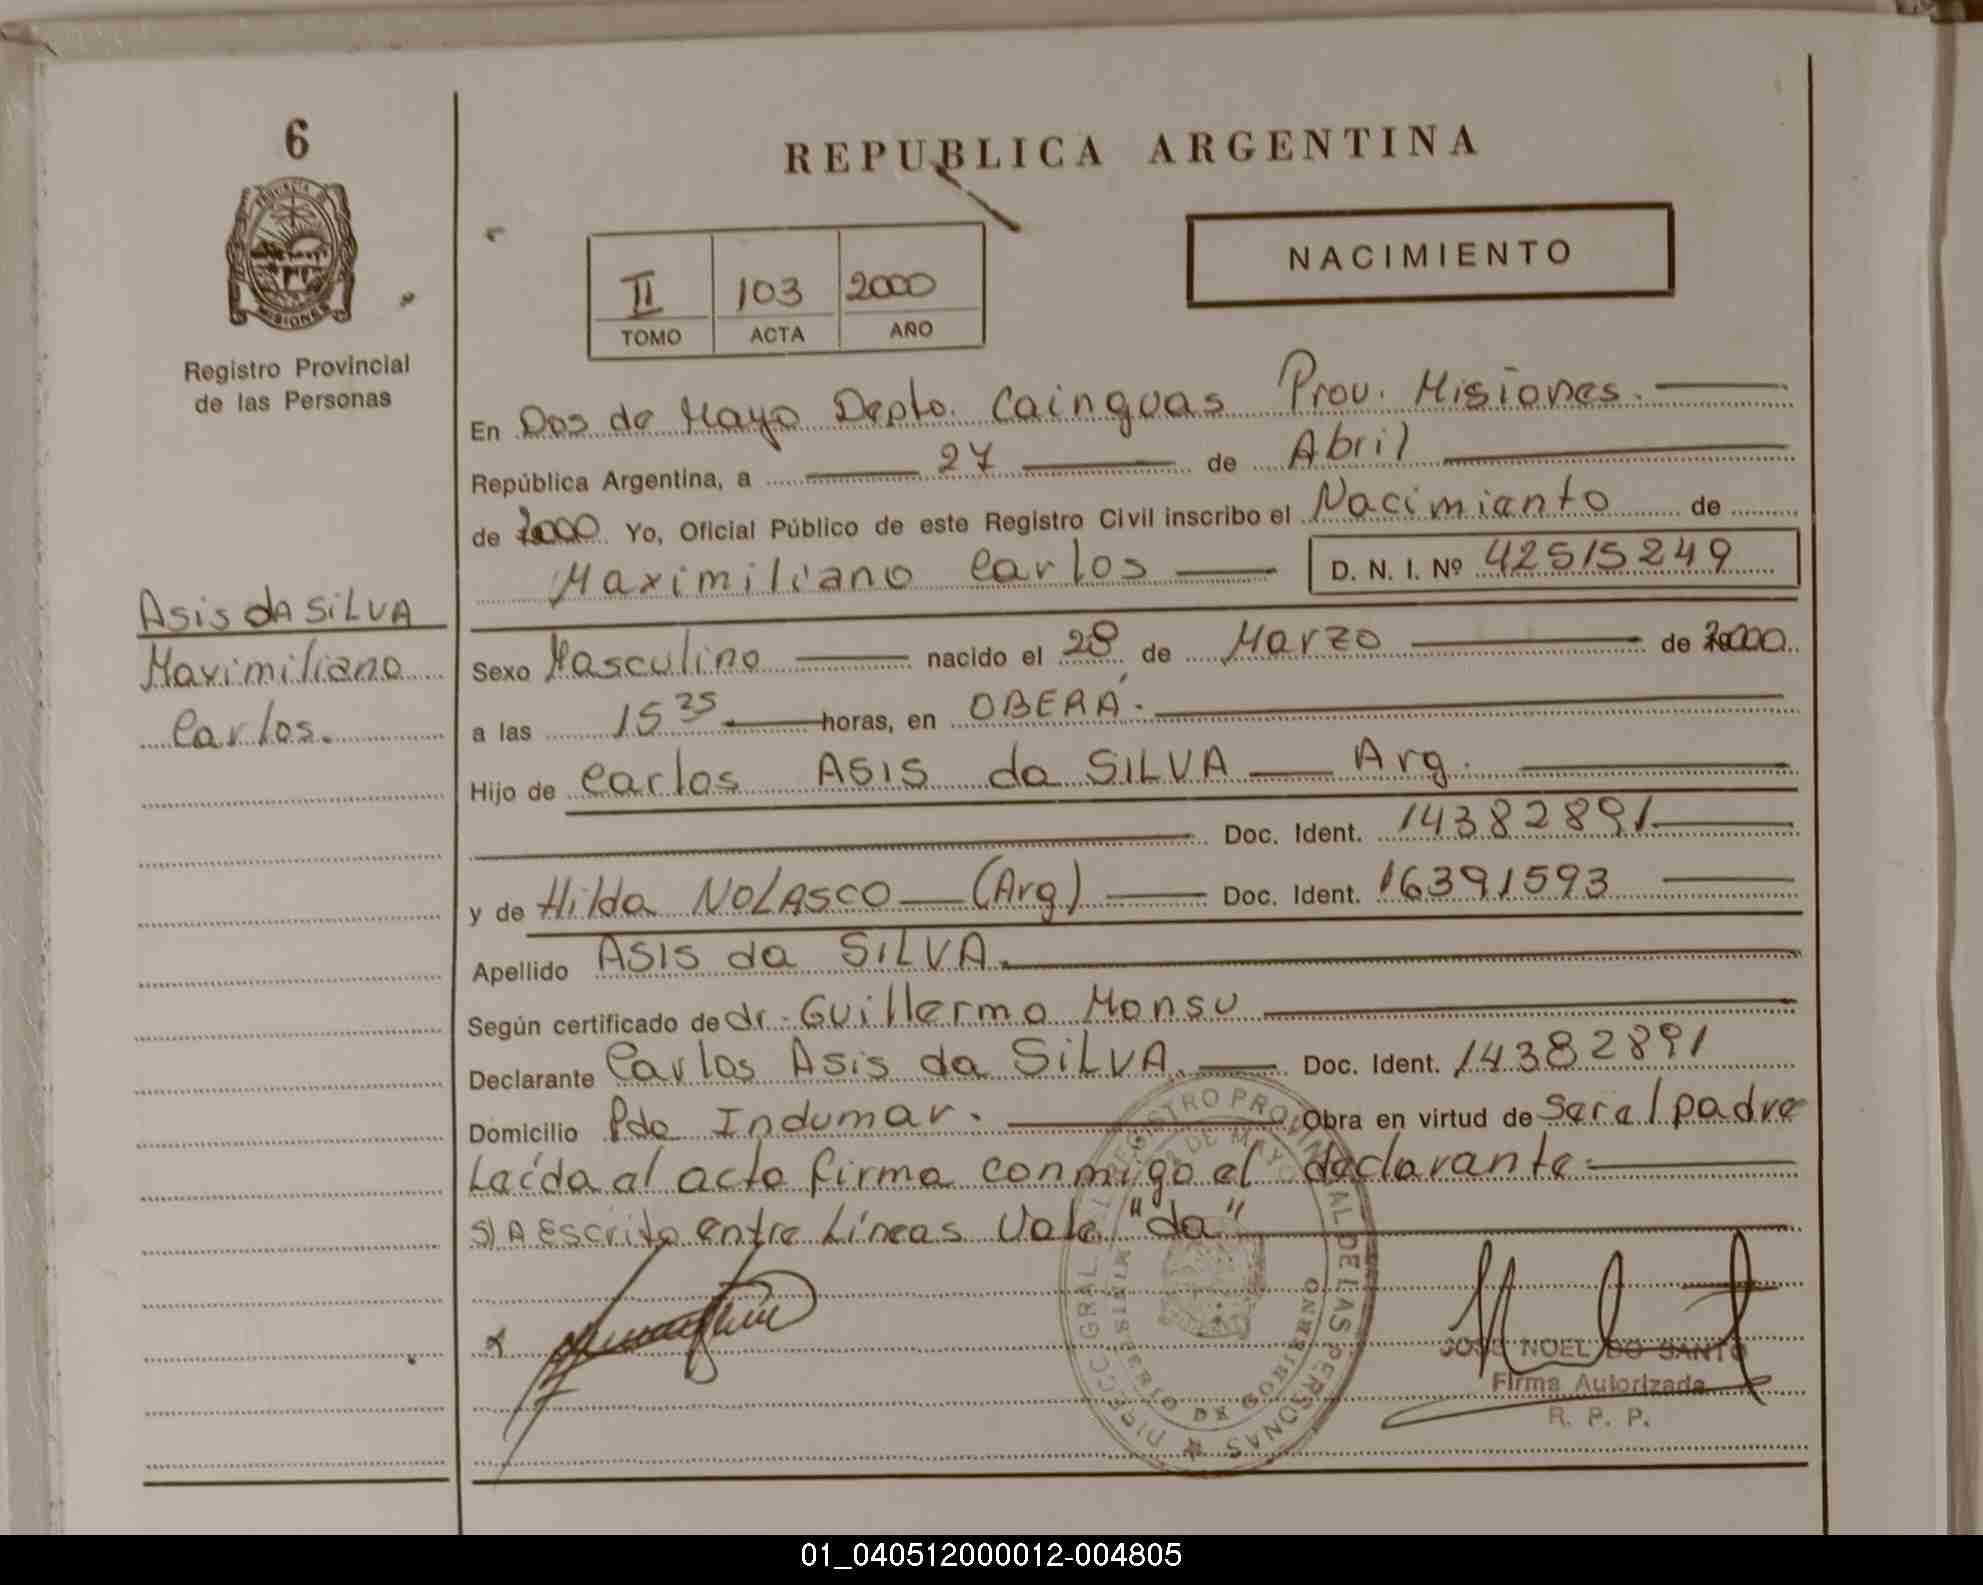 6
REPUBLICA ARGENTINA
PROVINCIA DE
MISIONES
Registro Provincial
de las Personas
NACIMIENTO
II 103 2000
TOMO ACTA AÑO
En Dos de Mayo Depto. Cainguas Prov. Misiones.
República Argentina, a 27 de Abril
de 2000 Yo, Oficial Público de este Registro Civil inscribo el Nacimianto de
Maximiliano Carlos D. N. I. Nº 42515249
Asis da SiLVA
Maximiliano
Carlos.
Sexo Masculino nacido el 28 de Marzo de 2000
a las 15 35 horas, en OBERÁ.
Hijo de Carlos ASIS da SILVA Arg.
Doc. Ident. 14382891
y de Hilda NOLASCO (Arg) Doc. Ident. 16391593
Apellido ASIS da SILVA.
Según certificado de dr. Guillermo Monsu
Declarante Carlos Asis da SiLVA. Doc. Ident. 14382891
Domicilio Pdo Indumar. Obra en virtud de ser el padre
Leída al acto firma conmigo el declarante.
S/A Escrito entre Líneas Vale "da"
DIRECC. GRAL. DEL REGISTRO PROVINCIAL DE LAS PERSONAS
DE MAYO
MINISTERIO DE GOBIERNO
JOSE NOEL DO SANTO
Firma Autorizada
R. P. P.
01_040512000012-004805